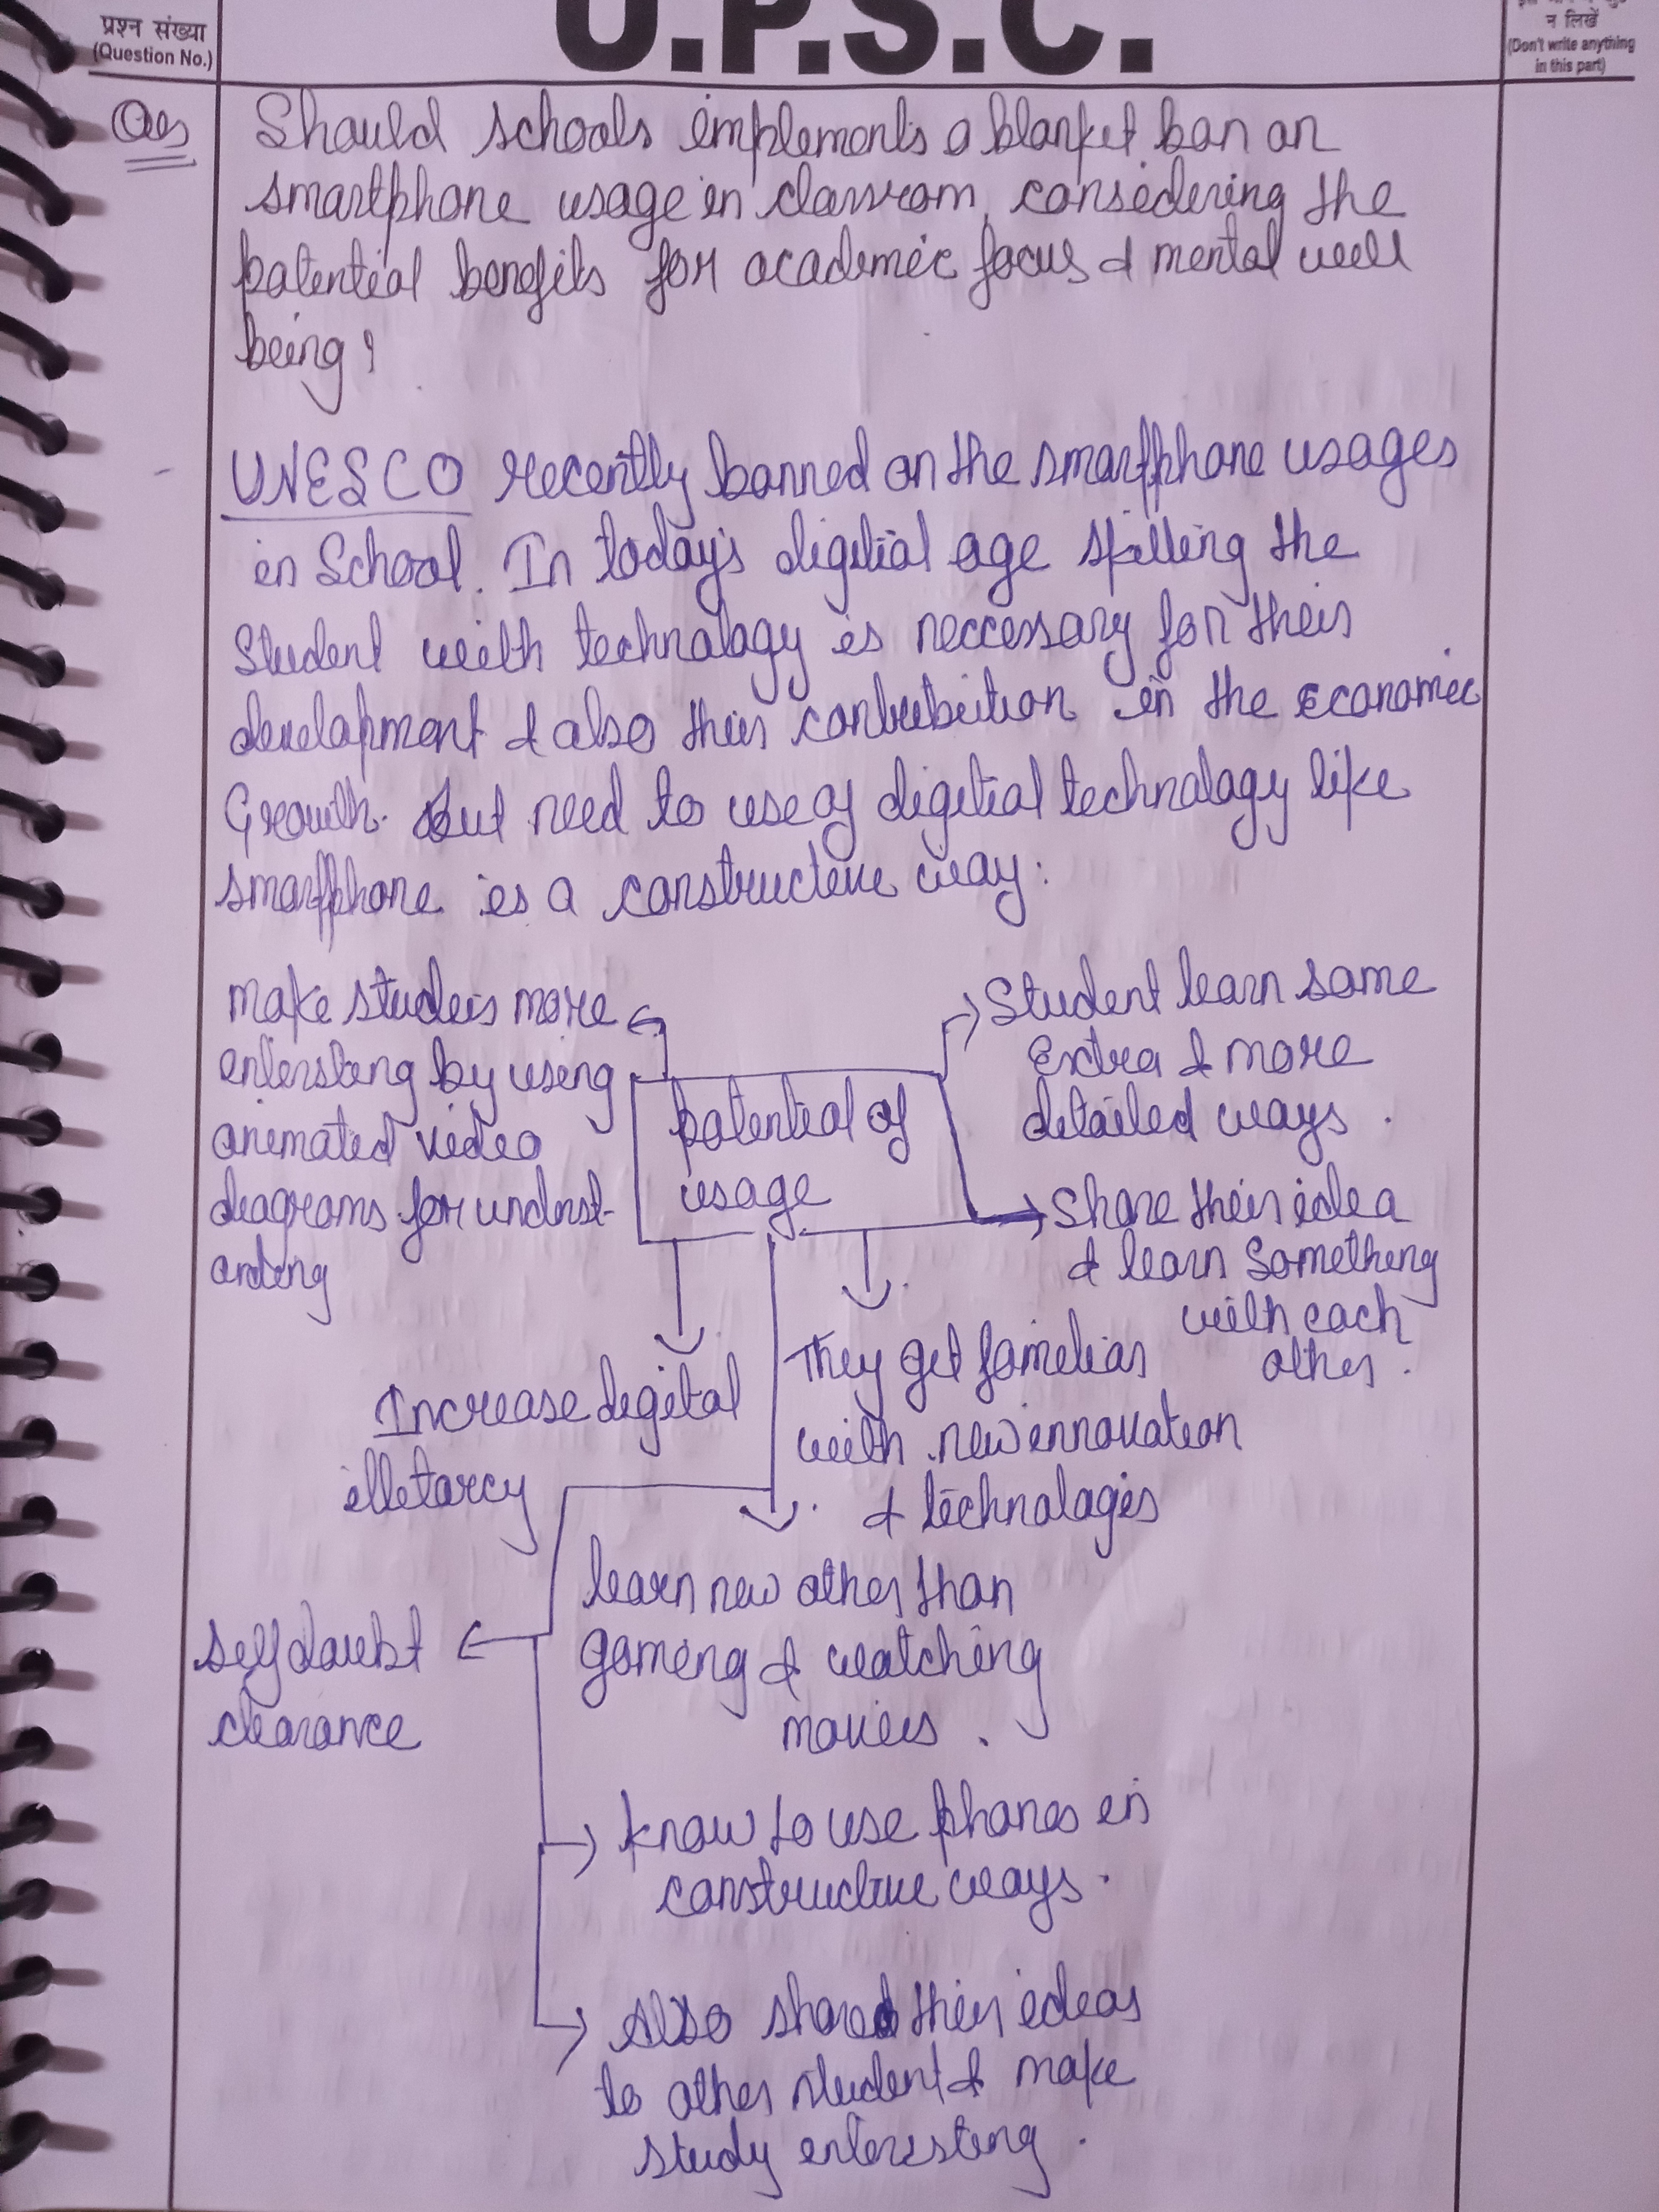 प्रश्न संख्या
(Question No.)
U.P.S.C.
न लिखें
(Don't write anything
in this part)
Qes
Should schools implements a blanket ban on
smartphone usage in classroom, considering the
potential benefits for academic focus & mental well
being?
UNESCO recently banned on the smartphone usages
in School. In today's digitial age spilling the
Student with technology is neccessary for their
development & also their contribution in the Economic
Growth. But need to use of digitial technology like
smartphone is a constructive way:
make studies more
intersting by using
animated video
diagrams for underst-
anding
potential of
usage
Student learn some
Extra & more
detailed ways.
Share their idea
& learn Something
with each
other.
Increase digital
illetarcy
They get familiar
with new innovation
& technologies
learn new other than
gaming & watching
movies.
self doubt
clearance
know to use phones in
constructive ways.
Also shared their ideas
to other student & make
study interesting.